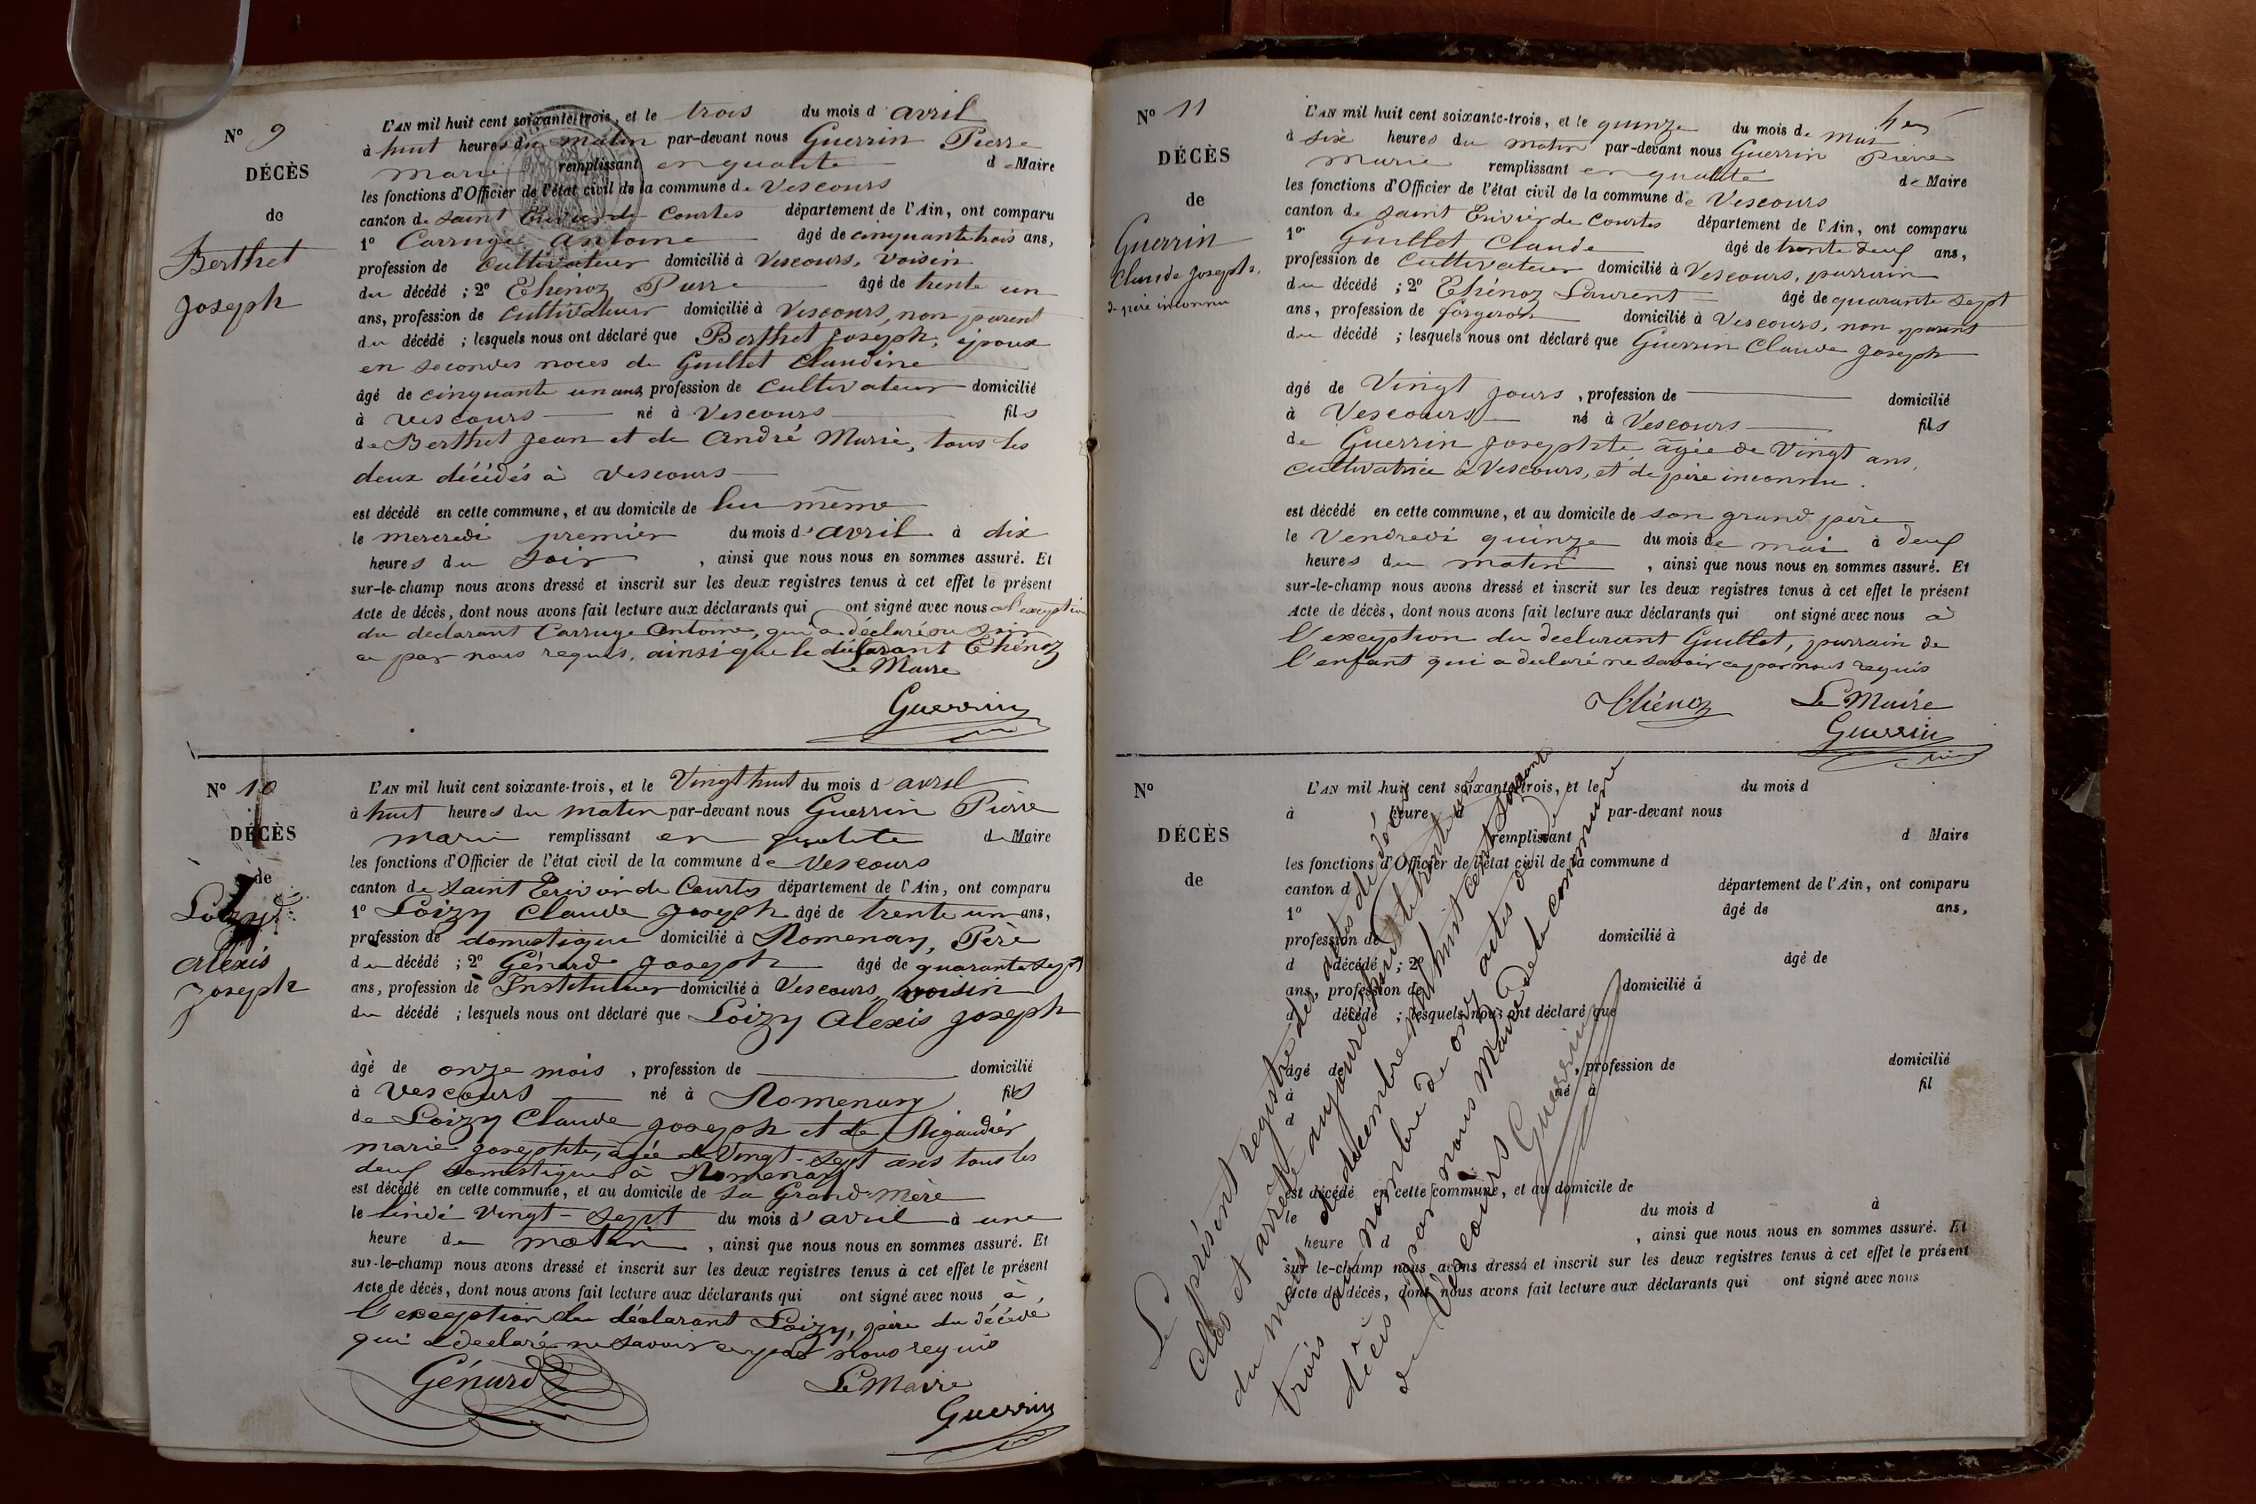 N° 9
DÉCÈS
de
Berthet
Joseph
L'AN mil huit cent soixante-trois, et le trois du mois d'avril
à huit heures du matin par-devant nous Guerrin Pierre
Marie remplissant en qualité de Maire
les fonctions d'Officier de l'état civil de la commune de Vescours
canton de Saint Trivier de Courtes département de l'Ain, ont comparu
1° Carruge Antoine âgé de cinquante trois ans,
profession de cultivateur domicilié à Vescours, voisin
du décédé ; 2° Thénoz Pierre âgé de trente un
ans, profession de cultivateur domicilié à Vescours, non parent
du décédé ; lesquels nous ont déclaré que Berthet Joseph, époux
en secondes noces de Guillet Claudine
âgé de cinquante un ans, profession de cultivateur domicilié
à Vescours né à Vescours fils
de Berthet Jean et de André Marie, tous les
deux décédés à Vescours
est décédé en cette commune, et au domicile de lui même
le mercredi premier du mois d'avril à dix
heures du soir, ainsi que nous nous en sommes assuré. Et
sur-le-champ nous avons dressé et inscrit sur les deux registres tenus à cet effet le présent
Acte de décès, dont nous avons fait lecture aux déclarants qui ont signé avec nous à l'exception
du déclarant Carruge Antoine, qui a déclaré ne savoir
ce par nous requis, ainsi que le déclarant Thénoz
Le Maire
Guerrin
N° 10
DÉCÈS
de
Loizy
Alexis
Joseph
L'AN mil huit cent soixante-trois, et le Vingt huit du mois d'avril
à huit heures du matin par-devant nous Guerrin Pierre
Marie remplissant en qualité de Maire
les fonctions d'Officier de l'état civil de la commune de Vescours
canton de Saint Trivier de Courtes département de l'Ain, ont comparu
1° Loizy Claude Joseph âgé de trente un ans,
profession de domestique domicilié à Romenay, Père
du décédé ; 2° Génard Joseph âgé de quarante sept
ans, profession de Instituteur domicilié à Vescours, voisin
du décédé ; lesquels nous ont déclaré que Loizy Alexis Joseph
âgé de onze mois, profession de domicilié
à Vescours né à Romenay fils
de Loizy Claude Joseph et de Rigaudier
Marie Josephte, agée de Vingt-sept ans tous les
deux domestiques à Romenay
est décédé en cette commune, et au domicile de sa Grand-Mère
le lundi Vingt-sept du mois d'avril à une
heure du matin, ainsi que nous nous en sommes assuré. Et
sur-le-champ nous avons dressé et inscrit sur les deux registres tenus à cet effet le présent
Acte de décès, dont nous avons fait lecture aux déclarants qui ont signé avec nous à
l'exception du déclarant Loizy, père du décédé
qui a déclaré ne savoir ce par nous requis
Génard
Le Maire
Guerrin
N° 11
DÉCÈS
de
Guerrin
Claude Joseph,
de père inconnu
L'AN mil huit cent soixante-trois, et le quinze du mois de Mai
à six heures du matin par-devant nous Guerrin Pierre
Marie remplissant en qualité de Maire
les fonctions d'Officier de l'état civil de la commune de Vescours
canton de Saint Trivier de Courtes département de l'Ain, ont comparu
1° Guillet Claude âgé de trente deux ans,
profession de cultivateur domicilié à Vescours, parrain
du décédé ; 2° Thénoz Laurent âgé de quarante sept
ans, profession de forgeron domicilié à Vescours, non parent
du décédé ; lesquels nous ont déclaré que Guerrin Claude Joseph
âgé de Vingt jours, profession de domicilié
à Vescours né à Vescours fils
de Guerrin Josephte agée de Vingt ans,
cultivatrice à Vescours, et de père inconnu.
est décédé en cette commune, et au domicile de son grand père
le Vendredi quinze du mois de mai à deux
heures du matin, ainsi que nous nous en sommes assuré. Et
sur-le-champ nous avons dressé et inscrit sur les deux registres tenus à cet effet le présent
Acte de décès, dont nous avons fait lecture aux déclarants qui ont signé avec nous à
l'exception du déclarant Guillet, parrain de
l'enfant qui a déclaré ne savoir ce par nous requis
Thénoz
Le Maire
Guerrin
N°
DÉCÈS
de
L'AN mil huit cent soixante-trois, et le du mois d
à heure d par-devant nous
remplissant d Maire
les fonctions d'Officier de l'état civil de la commune d
canton d département de l'Ain, ont comparu
1° âgé de ans,
profession de domicilié à
d décédé ; 2° âgé de
ans, profession de domicilié à
d décédé ; lesquels nous ont déclaré que
âgé de, profession de domicilié
à né à fil
d
est décédé en cette commune, et au domicile de
le du mois d à
heure d, ainsi que nous nous en sommes assuré. Et
sur le-champ nous avons dressé et inscrit sur les deux registres tenus à cet effet le présent
Acte de décès, dont nous avons fait lecture aux déclarants qui ont signé avec nous
Le présent registre des actes de décès
clos et arrêté aujourd'hui trente un
du mois de décembre mil huit cent soixante
trois au nombre de onze actes de
décès, par nous Maire de la commune
de Vescours Guerrin